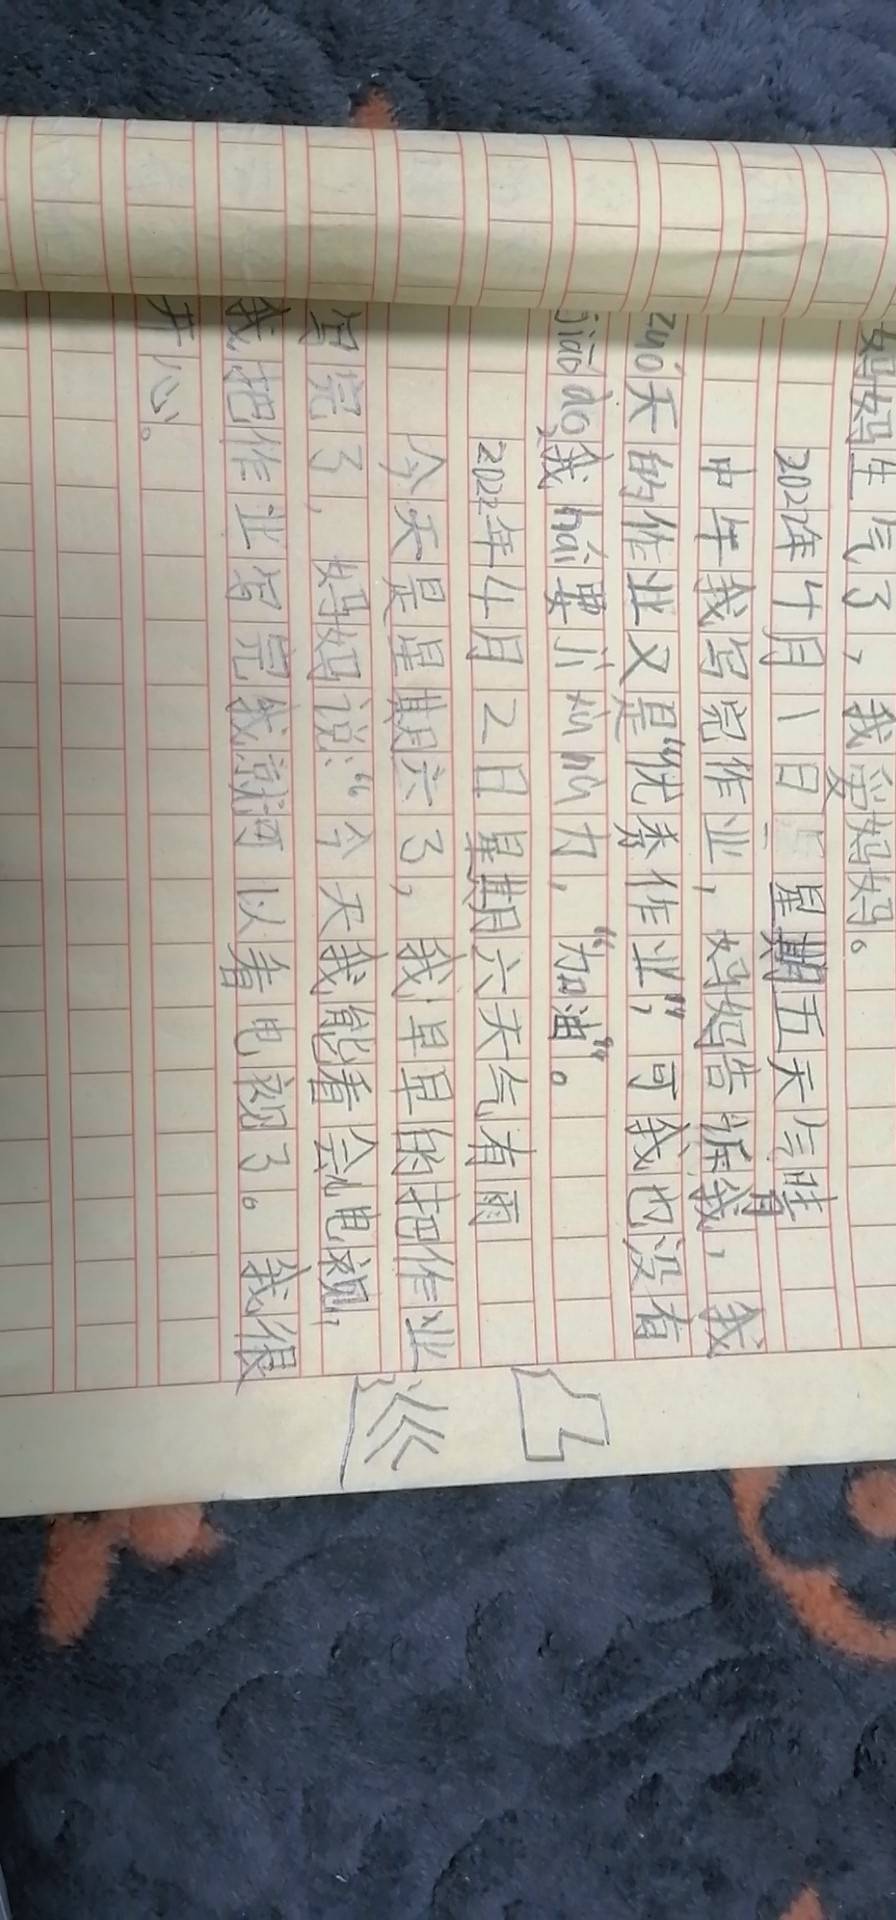 妈妈生气了，我爱妈妈。
2022年4月1日 星期五天气晴
中午我写完作业，妈妈告诉我，我
zuó天的作业又是“优秀作业”，可我也没有
jiāo ào，我hái要 nǔ力，“加油”。
2022年4月2日星期六天气有雨
今天是星期六了，我早早的把作业
写完了，妈妈说：“今天我能看会电视，
我把作业写完我就可以看电视了。我很
开心。